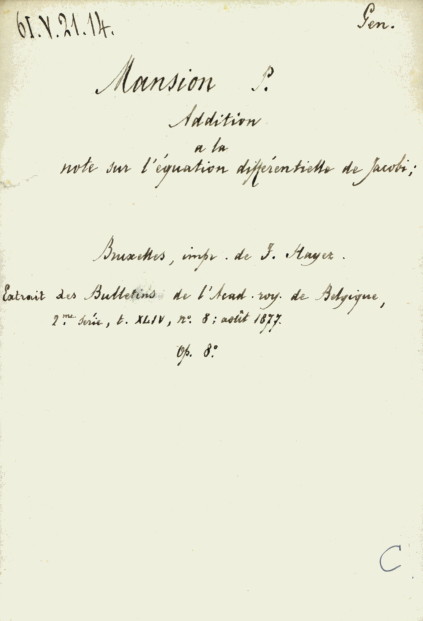 61.V.21.14.
Gen.
Mansion P.
Addition
a la
note sur l'équation différentielle de Jacobi;
Bruxelles, imp. de F. Hayez.
Extrait des Bulletins de l'Acad. roy. de Belgique,
2.me Série, t. XLIV, n.° 8; août 1877.
Op. 8.°
C